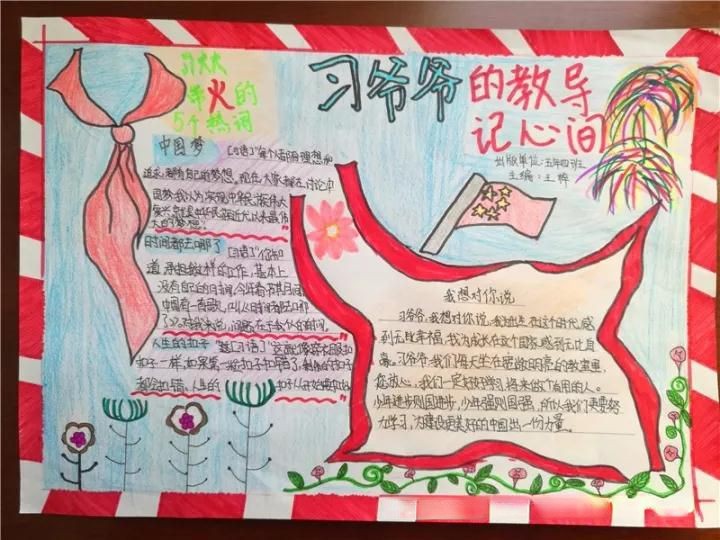 习大大
带火的
5个热词
习爷爷的教导
记心间
出版单位:五年四班
主编:王
中国梦 【习语】"每个人都有理想和
追求,都有自己的梦想。现在,大家都在讨论中
国梦,我认为,实现中华民族伟大
复兴,就是中华民族近代以来最伟
大的梦想"。
时间都去哪了 【习语】"你知
道,承担这样的工作,基本上
没有自己的时间。今年春节期间,
中国有一首歌,叫《时间都去哪
了》。对我来说,问题在于我个人的时间
人生的扣子 【习语】"这就像穿衣服扣
扣子一样,如果第一粒扣子扣错了,剩余的扣子
都会扣错。人生的扣子从开始
我想对你说
习爷爷,我想对你说,我出生在这个时代,感
到无比幸福,我为成长在这个国家感到无比自
豪。习爷爷,我们每天坐在宽敞明亮的教室里,
您放心,我们一定好好学习,将来做个有用的人。
少年进步则国进步,少年强则国强,所以我们更要努
力学习,为建设更美好的中国出一份力量。